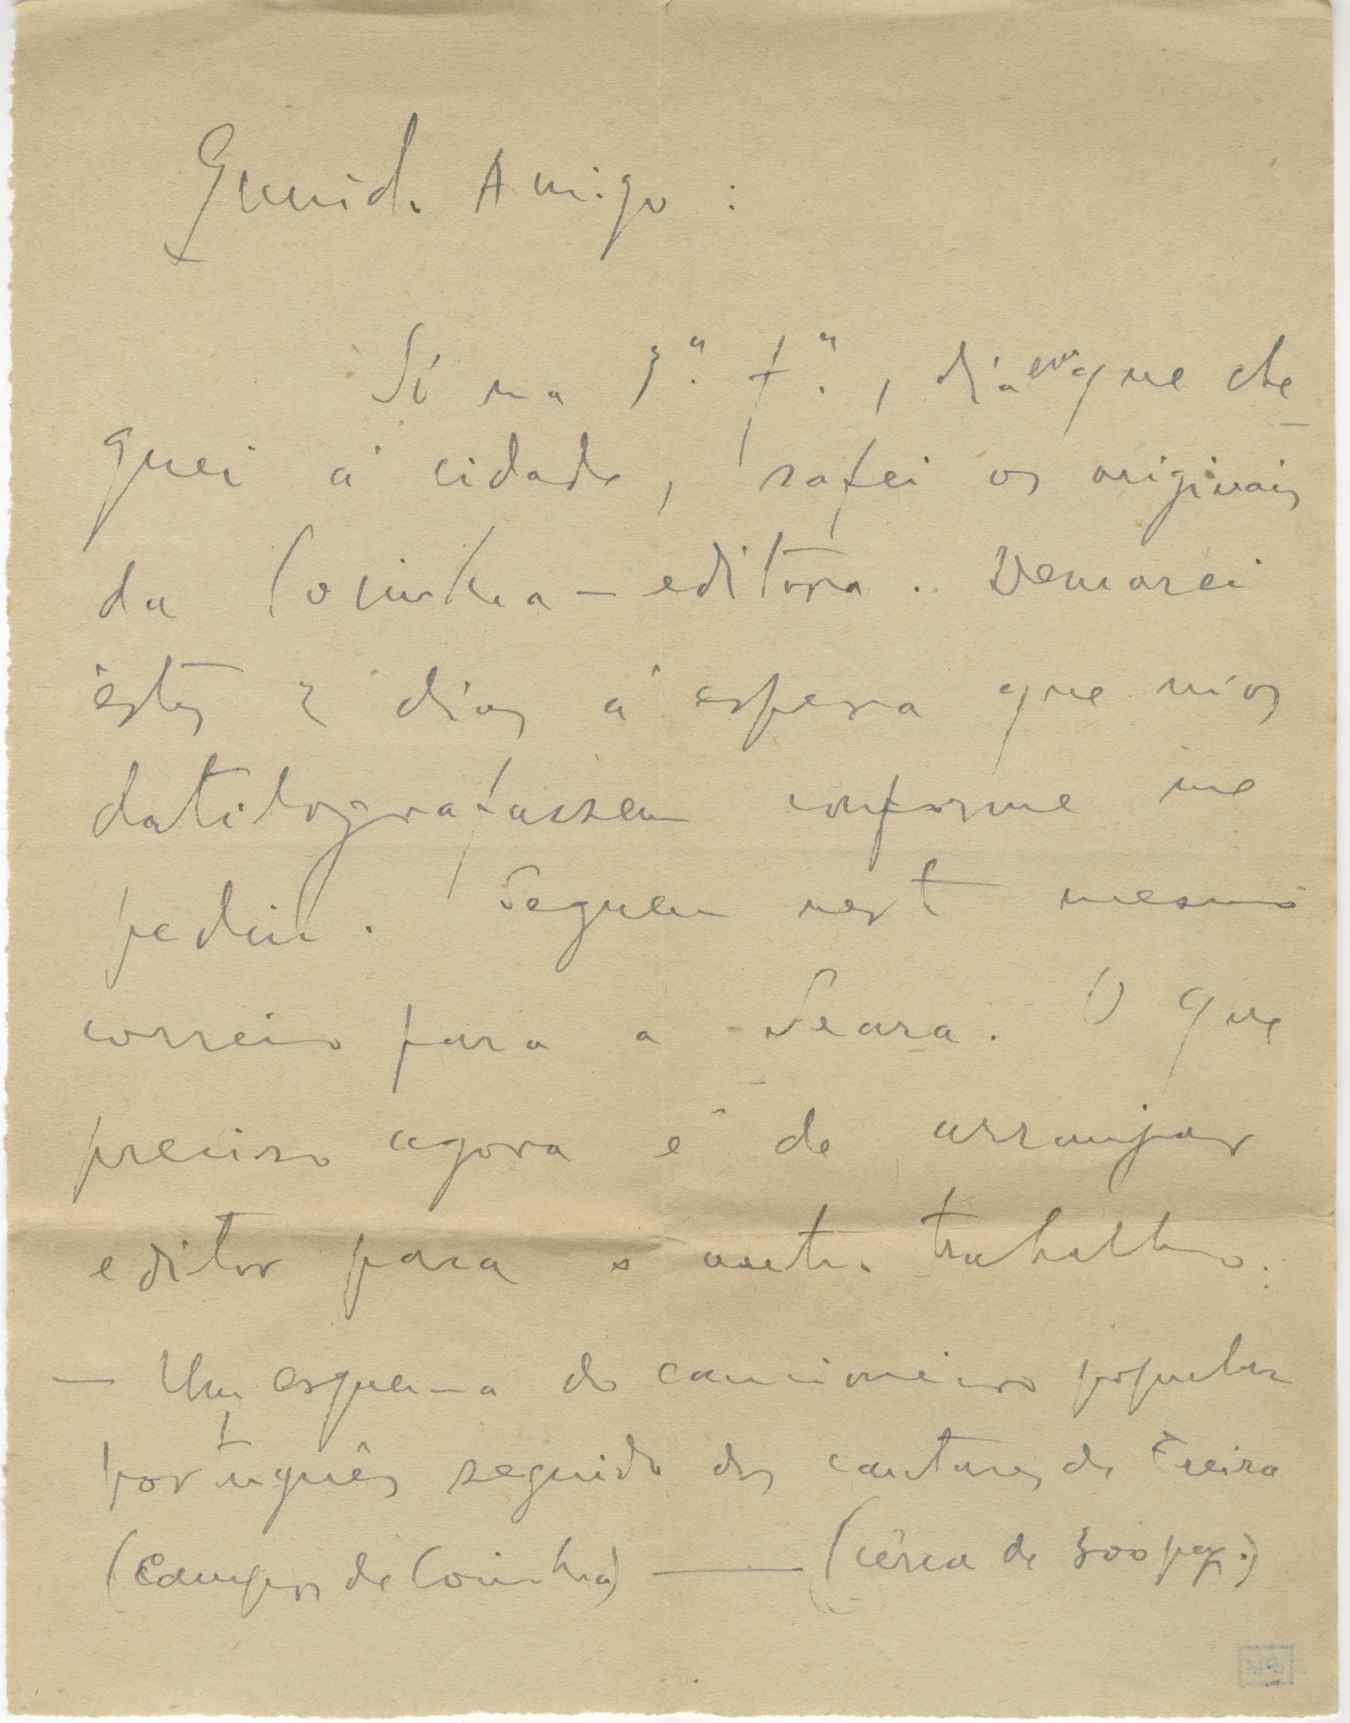 Querido Amigo:
Só na 3.ª f.ª, dia em que che
guei à cidade, safei os originais
da Coimbra-editora. Demorei
êstes 2 dias à espera que mos
datilografassem conforme me
pediu. Seguem neste mesmo
correio para a Seara. O que
preciso agora é de arranjar
editor para o outro trabalho.
— Um esquema do cancioneiro popular
português seguido dos cantares da Freira
(Campos de Coimbra) — (cêrca de 300 pag.)